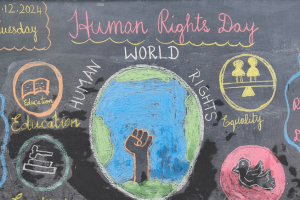 .12.2024
uesday
Human Rights Day
WORLD
HUMAN RIGHTS
Education
Education
Equality